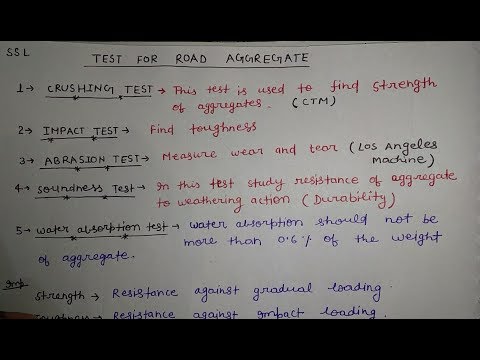 SSL
TEST FOR ROAD AGGREGATE
1→ CRUSHING TEST → This test is used to find strength
of aggregates. (CTM)
2→ IMPACT TEST → Find toughness
3→ ABRASION TEST → Measure wear and tear (Los Angeles
Machine)
4→ Soundness Test → In this test study resistance of aggregate
to weathering action (Durability)
5→ water absorption test → water absorption should not be
more than 0.6% of the weight
of aggregate.
Imp
Strength → Resistance against gradual loading.
Toughness → Resistance against impact loading.